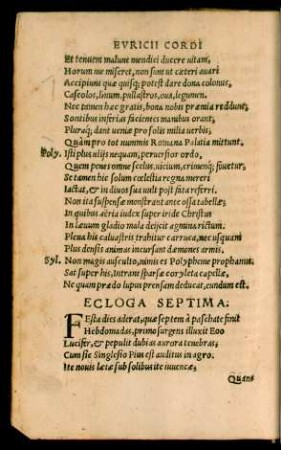 EVRICII CORDI
Et tenuem malunt mendici ducere uitam,
Horum me miseret, non sunt ut cæteri auari
Accipiunt quæ quisq; potest dare dona colonus,
Caseolos, linum, pullastros, oua, legumen.
Nec tamen hæc gratis, bona nobis præmia reddunt;
Sontibus inferias facientes manibus orant;
Pluraq; dant ueniæ pro solis milia uerbis;
Quàm pro tot nummis Romana Palatia mittunt.
Poly. Isti plus illis nequam, peruersior ordo,
Quem penes omne scelus, uicium, crimenq; fouetur;
Se tamen hic solum cœlestia regna mereri
Iactat, & in diuos sua uult post fata referri.
Non ita suspensæ monstrant ante ossa tabellæ;
In quibus aëria iudex super iride Christus
In læuum gladio mala deijcit agmina rictum.
Plena his caluastris trahitur carruca, nec usquam
Plus densi animas incursant dæmones armi.
Syl. Non magis ausculto, nimis es Polypheme prophanus.
Sat super his, intrant sparsæ coryleta capellæ,
Ne quam prædo lupus prensam deducat, eundum est.
ECLOGA SEPTIMA.
FEsta dies aderat, quæ septem à paschate finit
Hebdomadas, primo surgens illuxit Eoo
Lucifer, & pepulit dubias aurora tenebras;
Cum sic Singlesio Pius est auditus in agro.
Ite nouis lætæ sub solibus ite iuuencæ,
Quans